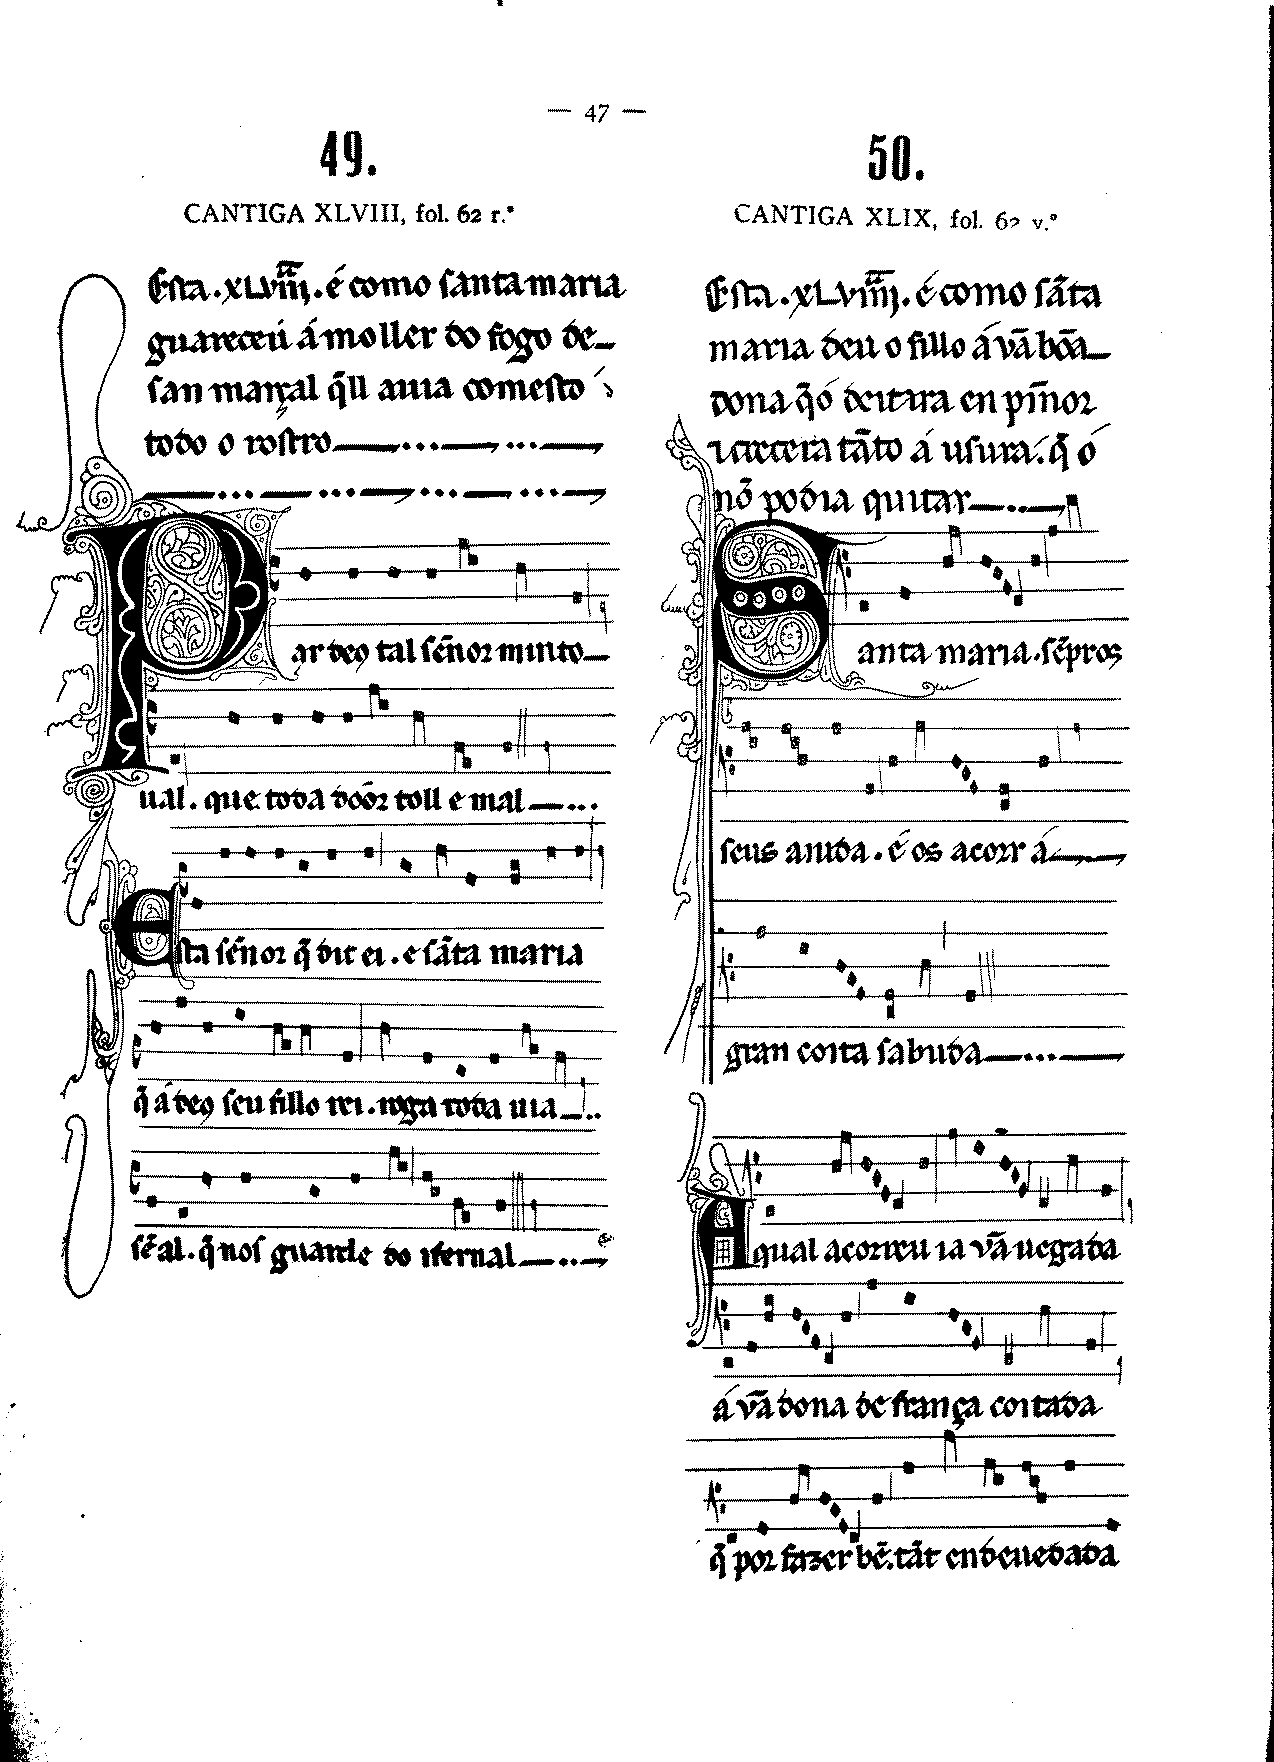 — 47 —
49.
CANTIGA XLVIII, fol. 62 r.º
Esta .XLVIIIJ. é como santa maria
guareceu á moller do fogo de
san marçal q̃ll auia comesto
todo o rostro
ar deꝯ tal sẽnor minto
ual. que toda dóór toll e mal
Esta sẽnor q̃ dit ei. e sãta maria
q̃ á deꝯ seu fillo rei. roga toda uia
sẽal. q̃ nos guarde do ifernal
50.
CANTIGA XLIX, fol. 62 v.º
Esta .XLVIIIJ. é como sãta
maria deu o fillo á vã bõa
dona q̃ó deitara en pĩnor
crecera tãto á usura. q̃ ó
nõ podia quitar
Santa maria. sẽpros
seus aiuda. é os acorr á
gran coita sabuda
A qual acorreu ia vã uegada
á vã dona de frança coitada
q̃ por fazer bẽ. tãt endeuedada